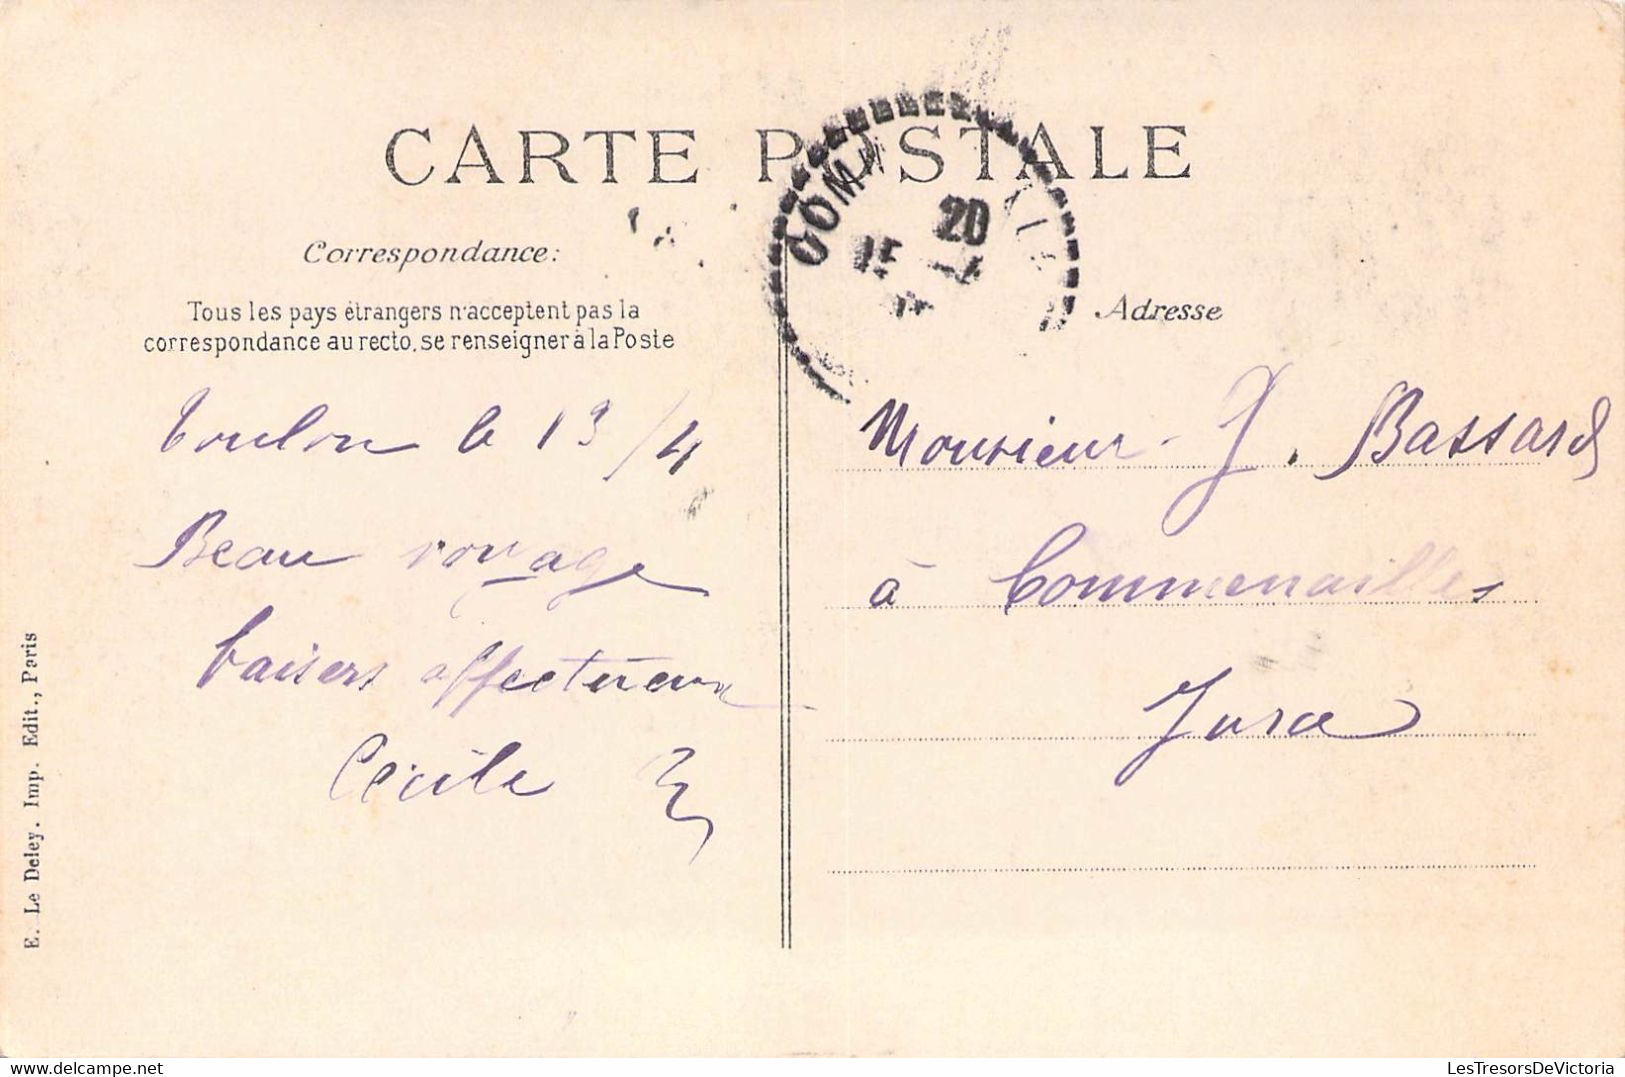 CARTE POSTALE
Correspondance:
Tous les pays étrangers n'acceptent pas la
correspondance au recto, se renseigner à la Poste
Toulon le 13/4
Beau voyage
baisers affectueux
Cécile
E. Le Deley. Imp. Edit., Paris
COMM
20
15
Adresse
Monsieur J. Bassard
à Commenailles
Jura
LesTresorsDeVictoria